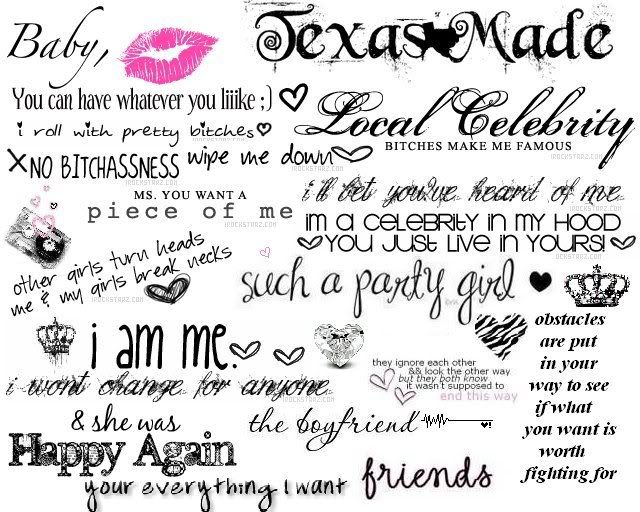 Baby,
Texas Made
You can have whatever you liiike ;)
i roll with pretty bitches
Local Celebrity
BITCHES MAKE ME FAMOUS
XNO BITCHASSNESS
wipe me down
IROCKSTARZ.COM
MS. YOU WANT A
piece of me
i'll bet you've heard of me
IROCKSTARZ.COM
im a CELEBRITY IN MY HOOD
YOU JUST LIVE IN YOURS!
other girls turn heads
me & my girls break necks
IROCKSTARZ.COM
such a party girl
i am me.
IROCKSTARZ.COM
i wont change for anyone
IROCKSTARZ.COM
they ignore each other
&& look the other way
but they both know
it wasn't supposed to
end this way
obstacles
are put
in your
way to see
if what
you want is
worth
fighting for
& she was
Happy Again
the boyfriend
your everything I want
friends